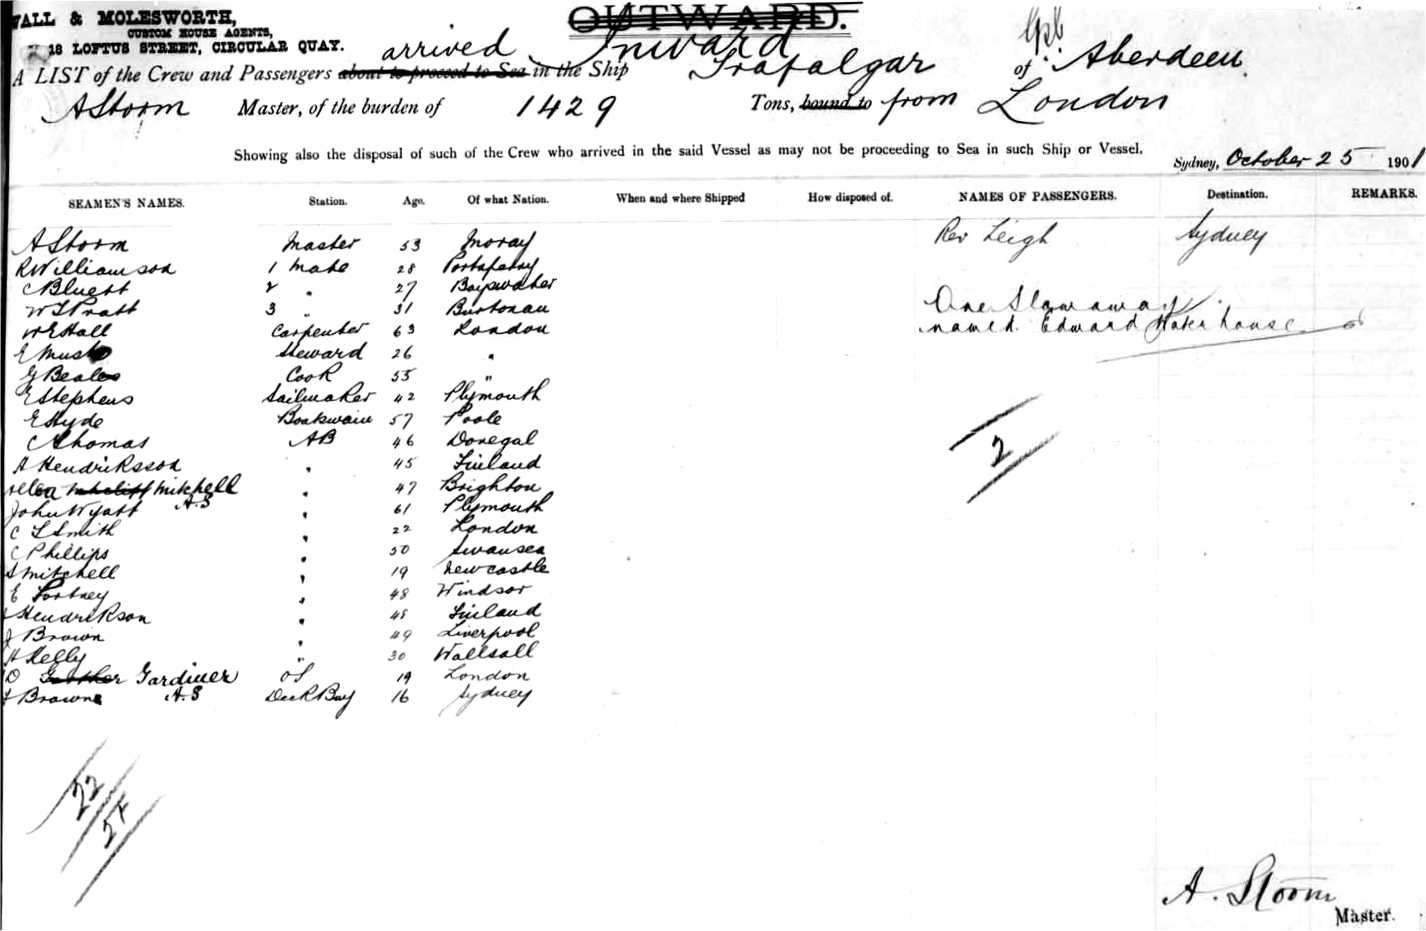 WALL & MOLESWORTH,
CUSTOM HOUSE AGENTS,
18 LOFTUS STREET, CIRCULAR QUAY.
OUTWARD.
arrived Inward
A LIST of the Crew and Passengers about to proceed to Sea in the Ship Trafalgar of Aberdeen
A Storm Master, of the burden of 1429 Tons, bound to from London
Showing also the disposal of such of the Crew who arrived in the said Vessel as may not be proceeding to Sea in such Ship or Vessel.
Sydney, October 25 1901
SEAMEN'S NAMES. Station. Age. Of what Nation. When and where Shipped How disposed of. NAMES OF PASSENGERS. Destination. REMARKS.
A Storm Master 53 Moray Rev Leigh Sydney
R Williamson 1 Mate 28
C Bluett 2 " 27 Bayswater
W S Pratt 3 " 31 One Stowaway
W E Hall Carpenter 63 London named Edward Waterhouse
E Musk Steward 26 "
G Beales Cook 55 "
E Stephens Sailmaker 42 Plymouth
E Hyde Boatswain 57 Poole
C Thomas AB 46 Donegal
A Hendriksson " 45 Finland
Mitchell " 47 Brighton
A.S
John Wyatt " 61 Plymouth
C L Smith " 22 London
C Phillips " 50 Swansea
S Mitchell " 19 Newcastle
E Fortney " 48 Windsor
Hendrikson " 48 Finland
J Brown " 49 Liverpool
H Kelly " 30 Wallsall
O Gardiner OS 19 London
A.S
Browne Deck Boy 16 Sydney
2
22
A. Storm
Master.